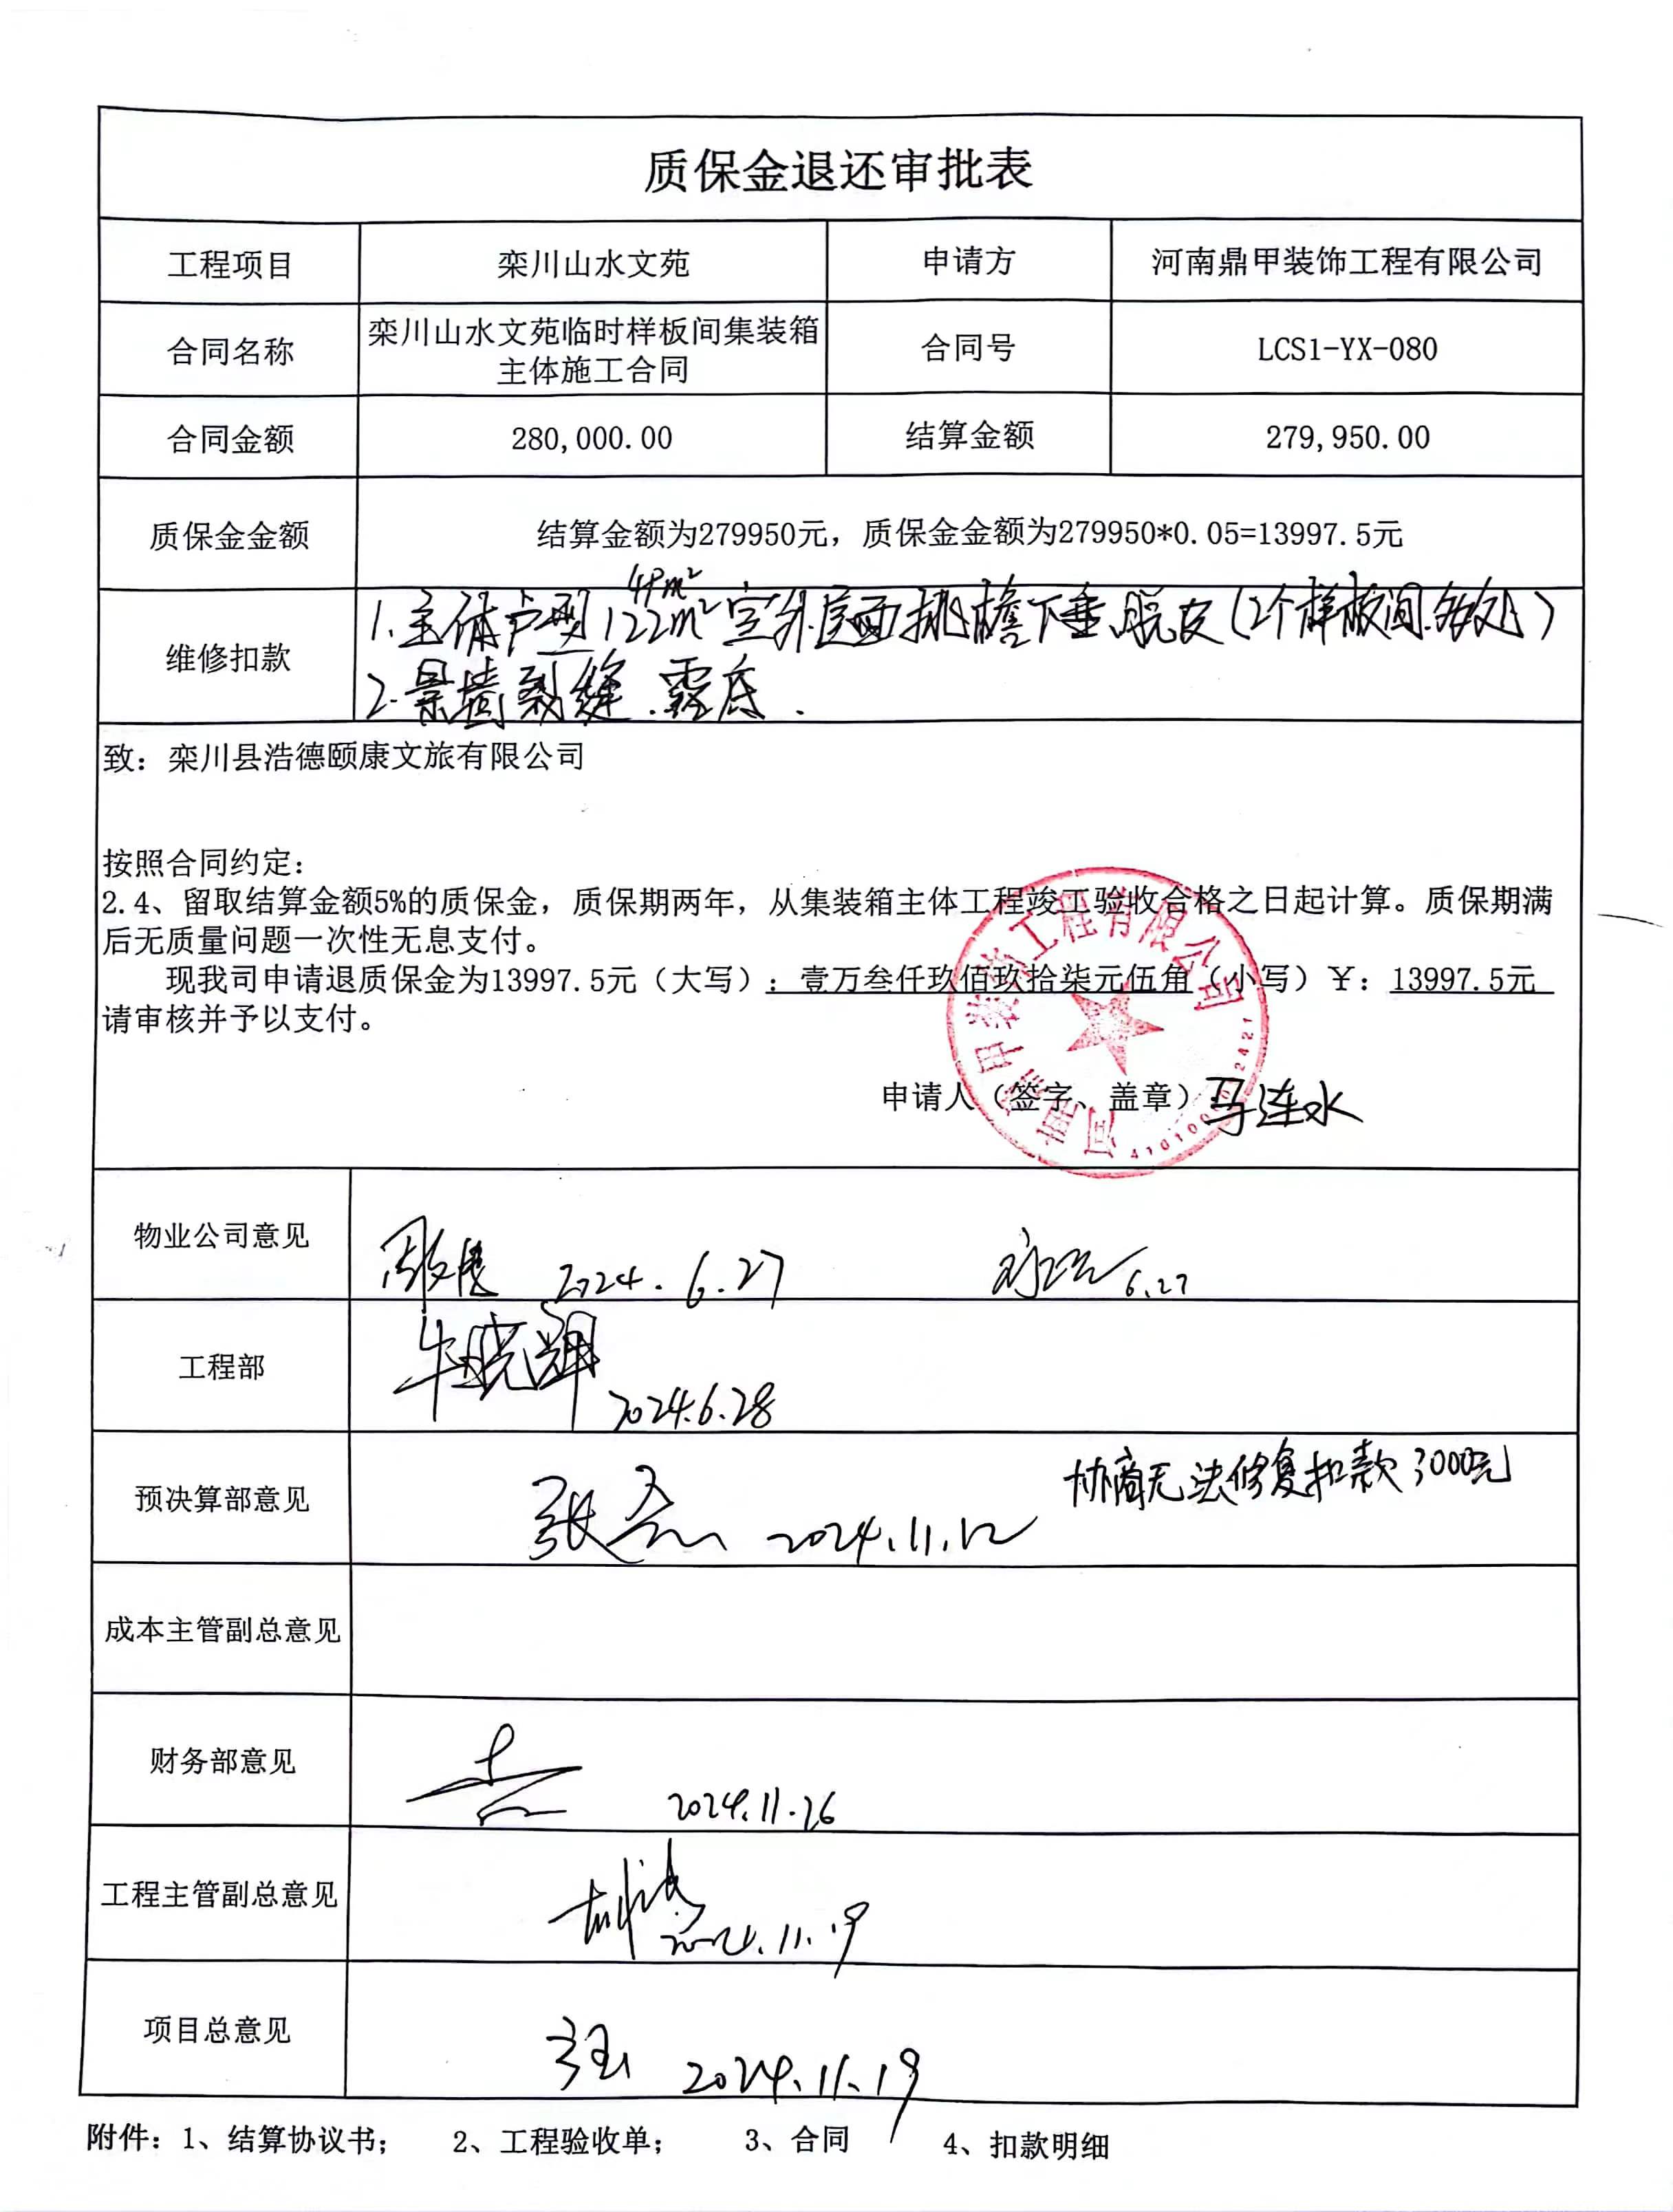 质保金退还审批表
工程项目 栾川山水文苑 申请方 河南鼎甲装饰工程有限公司
合同名称 栾川山水文苑临时样板间集装箱主体施工合同 合同号 LCS1-YX-080
合同金额 280,000.00 结算金额 279,950.00
质保金金额 结算金额为279950元，质保金金额为279950*0.05=13997.5元
维修扣款
49m²
1.主体户型122m²室外屋面挑檐下垂、脱皮(2个样板间.多处)
2.景墙裂缝.露底.
致：栾川县浩德颐康文旅有限公司
按照合同约定：
2.4、留取结算金额5%的质保金，质保期两年，从集装箱主体工程竣工验收合格之日起计算。质保期满
后无质量问题一次性无息支付。
现我司申请退质保金为13997.5元（大写）：壹万叁仟玖佰玖拾柒元伍角（小写）￥：13997.5元
请审核并予以支付。
河南鼎甲装饰工程有限公司
申请人（签字、盖章）马连水
物业公司意见 2024.6.27 6.27
工程部 牛晓辉 2024.6.28
预决算部意见 张 2024.11.12 协商无法修复扣款3000元
成本主管副总意见
财务部意见 2024.11.26
工程主管副总意见 2024.11.19
项目总意见 2024.11.19
附件：1、结算协议书； 2、工程验收单； 3、合同 4、扣款明细